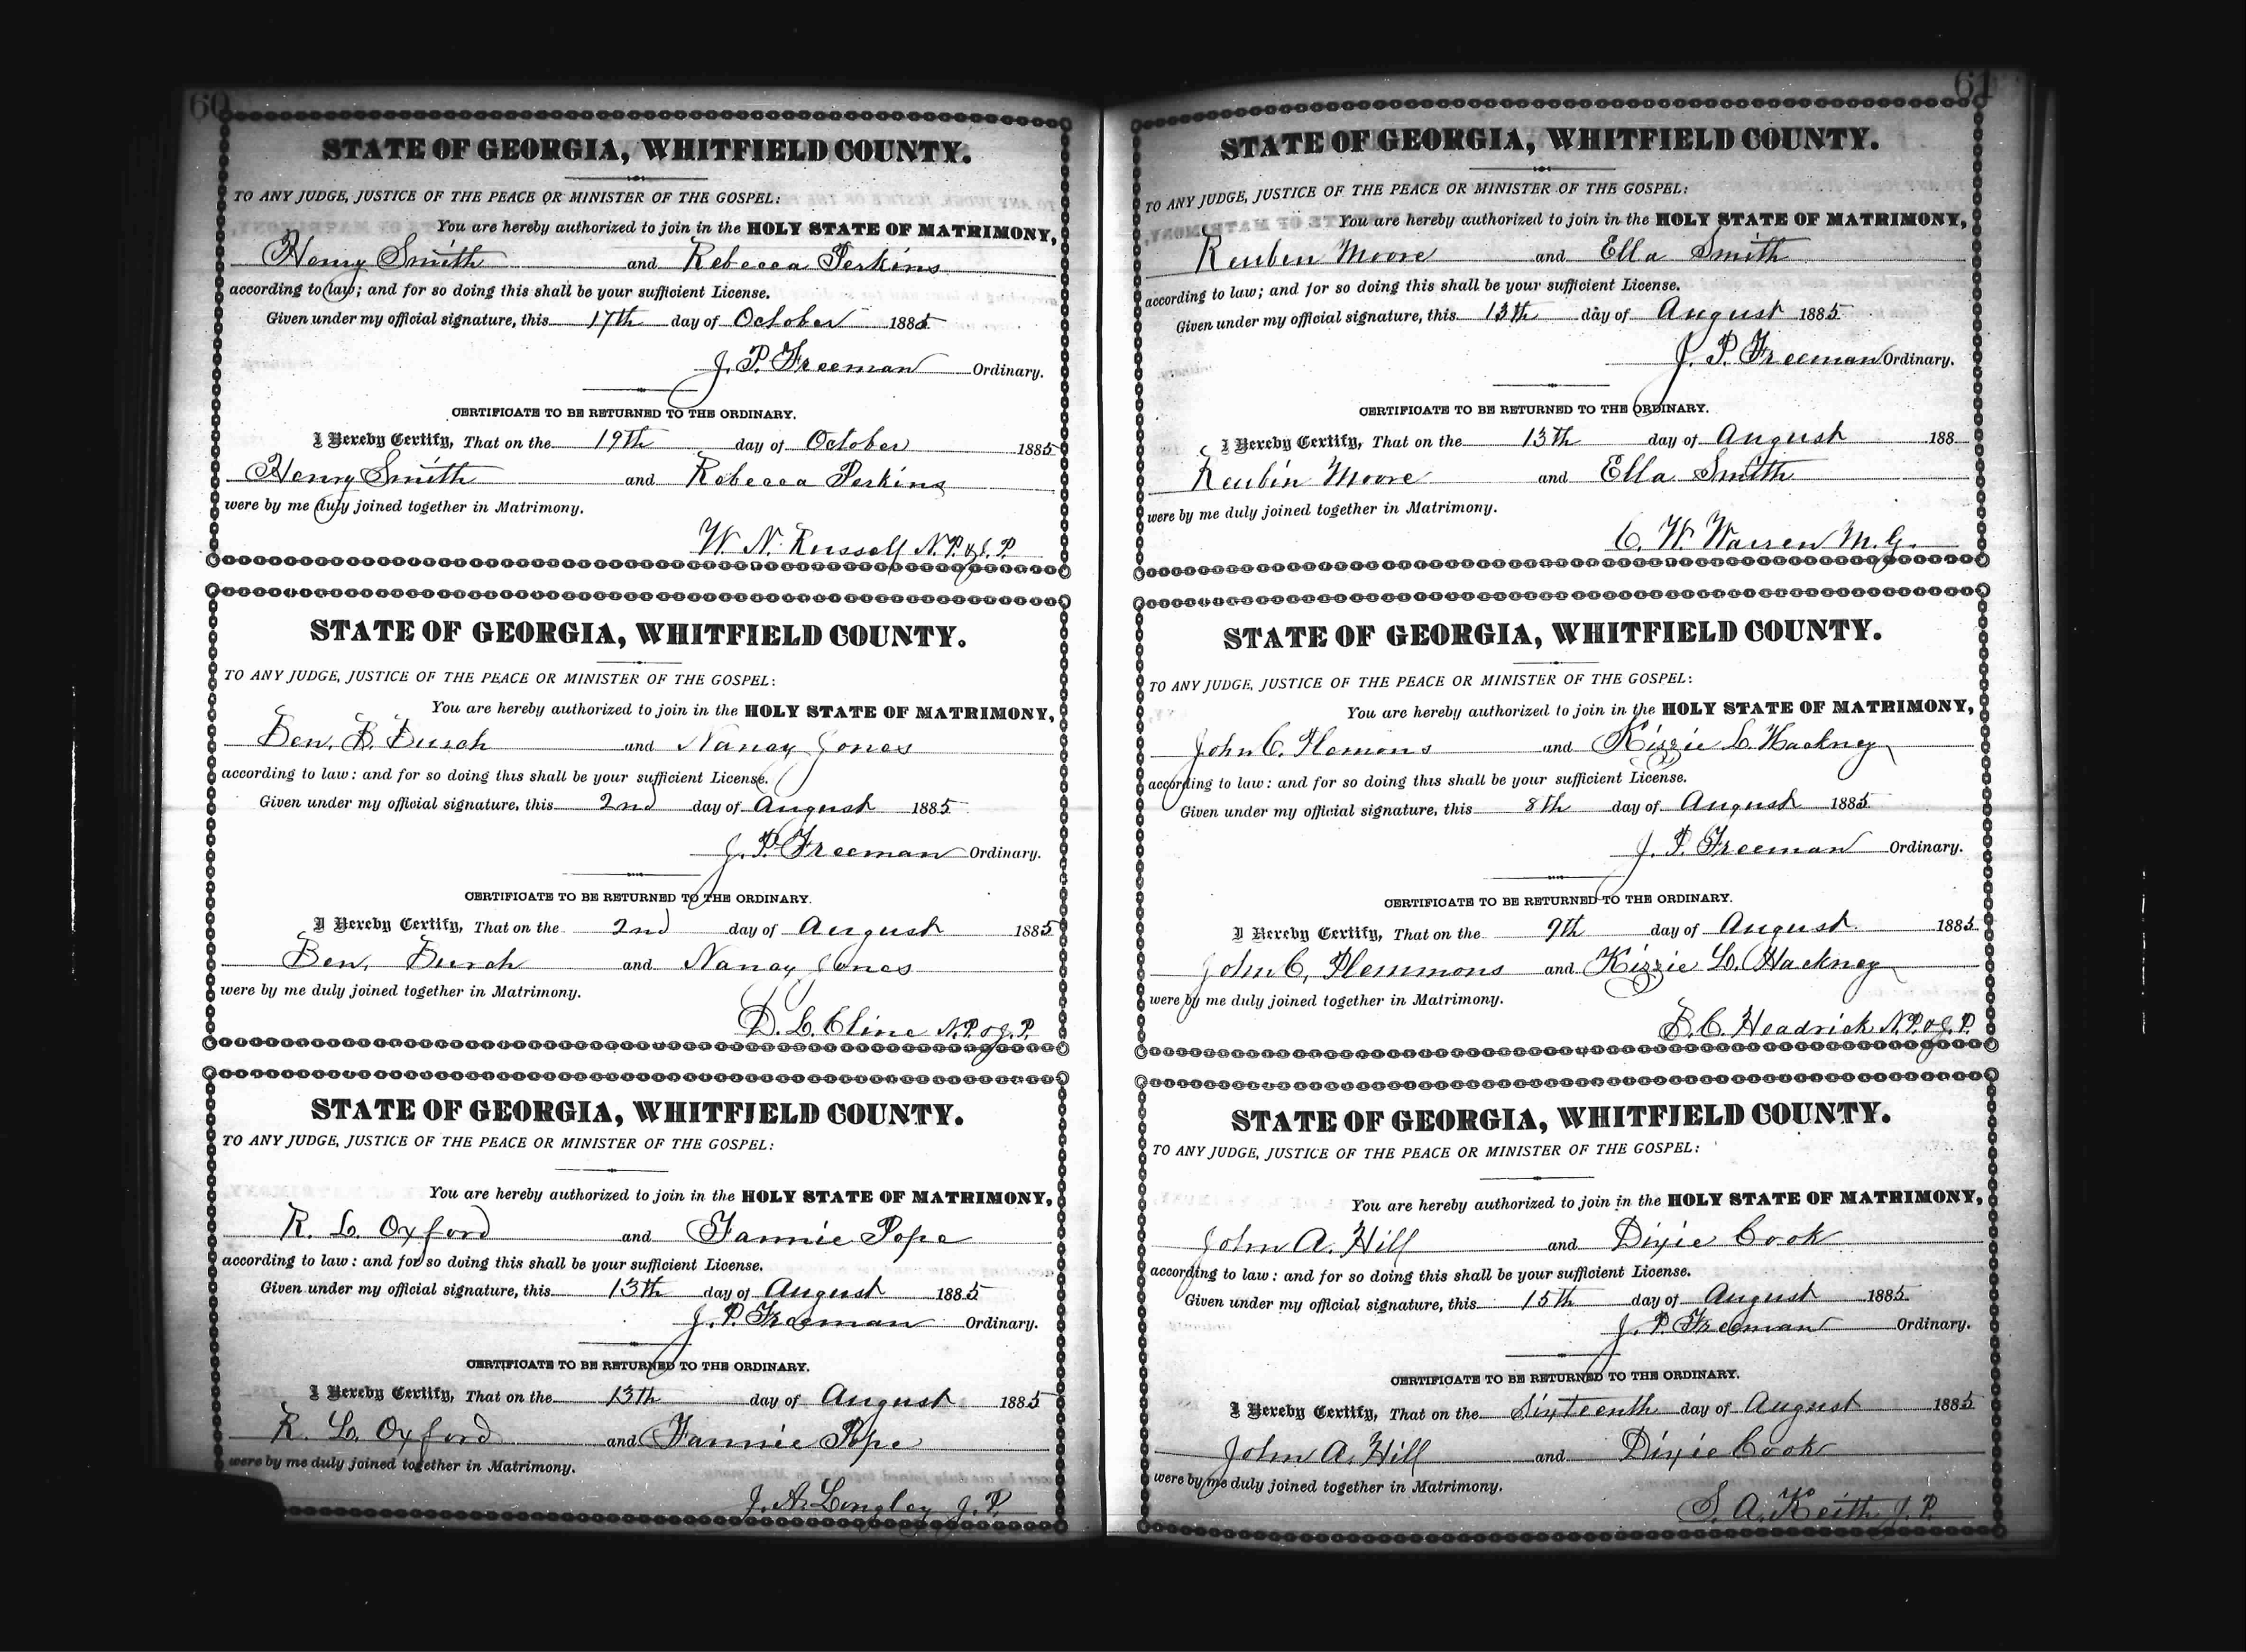 60
STATE OF GEORGIA, WHITFIELD COUNTY.
TO ANY JUDGE, JUSTICE OF THE PEACE OR MINISTER OF THE GOSPEL:
You are hereby authorized to join in the HOLY STATE OF MATRIMONY,
Henry Smith and Rebecca Perkins
according to law; and for so doing this shall be your sufficient License.
Given under my official signature, this 17th day of October 1885
J. P. Freeman Ordinary.
CERTIFICATE TO BE RETURNED TO THE ORDINARY.
I Hereby Certify, That on the 19th day of October 1885
Henry Smith and Rebecca Perkins
were by me duly joined together in Matrimony.
W. N. Russell N.P. & J. P.
STATE OF GEORGIA, WHITFIELD COUNTY.
TO ANY JUDGE, JUSTICE OF THE PEACE OR MINISTER OF THE GOSPEL:
You are hereby authorized to join in the HOLY STATE OF MATRIMONY,
Ben. B. Burch and Nancy Jones
according to law: and for so doing this shall be your sufficient License.
Given under my official signature, this 2nd day of August 1885
J. P. Freeman Ordinary.
CERTIFICATE TO BE RETURNED TO THE ORDINARY.
I Hereby Certify, That on the 2nd day of August 1885
Ben. Burch and Nancy Jones
were by me duly joined together in Matrimony.
D. L. Cline N.P. & J. P.
STATE OF GEORGIA, WHITFIELD COUNTY.
TO ANY JUDGE, JUSTICE OF THE PEACE OR MINISTER OF THE GOSPEL:
You are hereby authorized to join in the HOLY STATE OF MATRIMONY,
R. L. Oxford and Fannie Pope
according to law: and for so doing this shall be your sufficient License.
Given under my official signature, this 13th day of August 1885
J. P. Freeman Ordinary.
CERTIFICATE TO BE RETURNED TO THE ORDINARY.
I Hereby Certify, That on the 13th day of August 1885
R. L. Oxford and Fannie Pope
were by me duly joined together in Matrimony.
J. A. Longley J. P.
61
STATE OF GEORGIA, WHITFIELD COUNTY.
TO ANY JUDGE, JUSTICE OF THE PEACE OR MINISTER OF THE GOSPEL:
You are hereby authorized to join in the HOLY STATE OF MATRIMONY,
Reuben Moore and Ella Smith
according to law; and for so doing this shall be your sufficient License.
Given under my official signature, this 13th day of August 1885
J. P. Freeman Ordinary.
CERTIFICATE TO BE RETURNED TO THE ORDINARY.
I Hereby Certify, That on the 13th day of August 188
Reubin Moore and Ella Smith
were by me duly joined together in Matrimony.
C. W. Warren M. G.
STATE OF GEORGIA, WHITFIELD COUNTY.
TO ANY JUDGE, JUSTICE OF THE PEACE OR MINISTER OF THE GOSPEL:
You are hereby authorized to join in the HOLY STATE OF MATRIMONY,
John C. Flemons and Kizzie L. Hackney
according to law: and for so doing this shall be your sufficient License.
Given under my official signature, this 8th day of August 1885
J. P. Freeman Ordinary.
CERTIFICATE TO BE RETURNED TO THE ORDINARY.
I Hereby Certify, That on the 9th day of August 1885
John C, Flemmons and Kizzie L. Hackney
were by me duly joined together in Matrimony.
B. C. Headrick N.P. & J. P.
STATE OF GEORGIA, WHITFIELD COUNTY.
TO ANY JUDGE, JUSTICE OF THE PEACE OR MINISTER OF THE GOSPEL:
You are hereby authorized to join in the HOLY STATE OF MATRIMONY,
John A. Hill and Dixie Cook
according to law: and for so doing this shall be your sufficient License.
Given under my official signature, this 15th day of August 1885
J. P. Freeman Ordinary.
CERTIFICATE TO BE RETURNED TO THE ORDINARY.
I Hereby Certify, That on the Sixteenth day of August 1885
John A. Hill and Dixie Cook
were by me duly joined together in Matrimony.
S. A. Keith J. P.